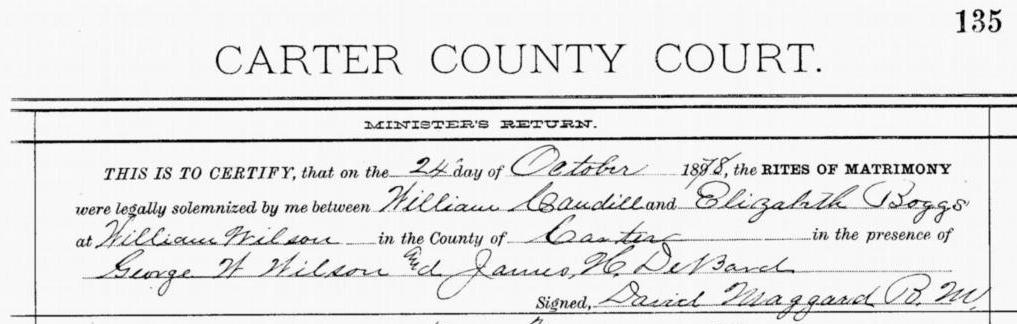 135
CARTER COUNTY COURT.
MINISTER'S RETURN.
THIS IS TO CERTIFY, that on the 24 day of October 1878, the RITES OF MATRIMONY
were legally solemnized by me between William Caudill and Elizabeth Boggs
at William Wilson in the County of Carter in the presence of
George W Wilson and James H. DeBard
Signed, David Maggard B. M.